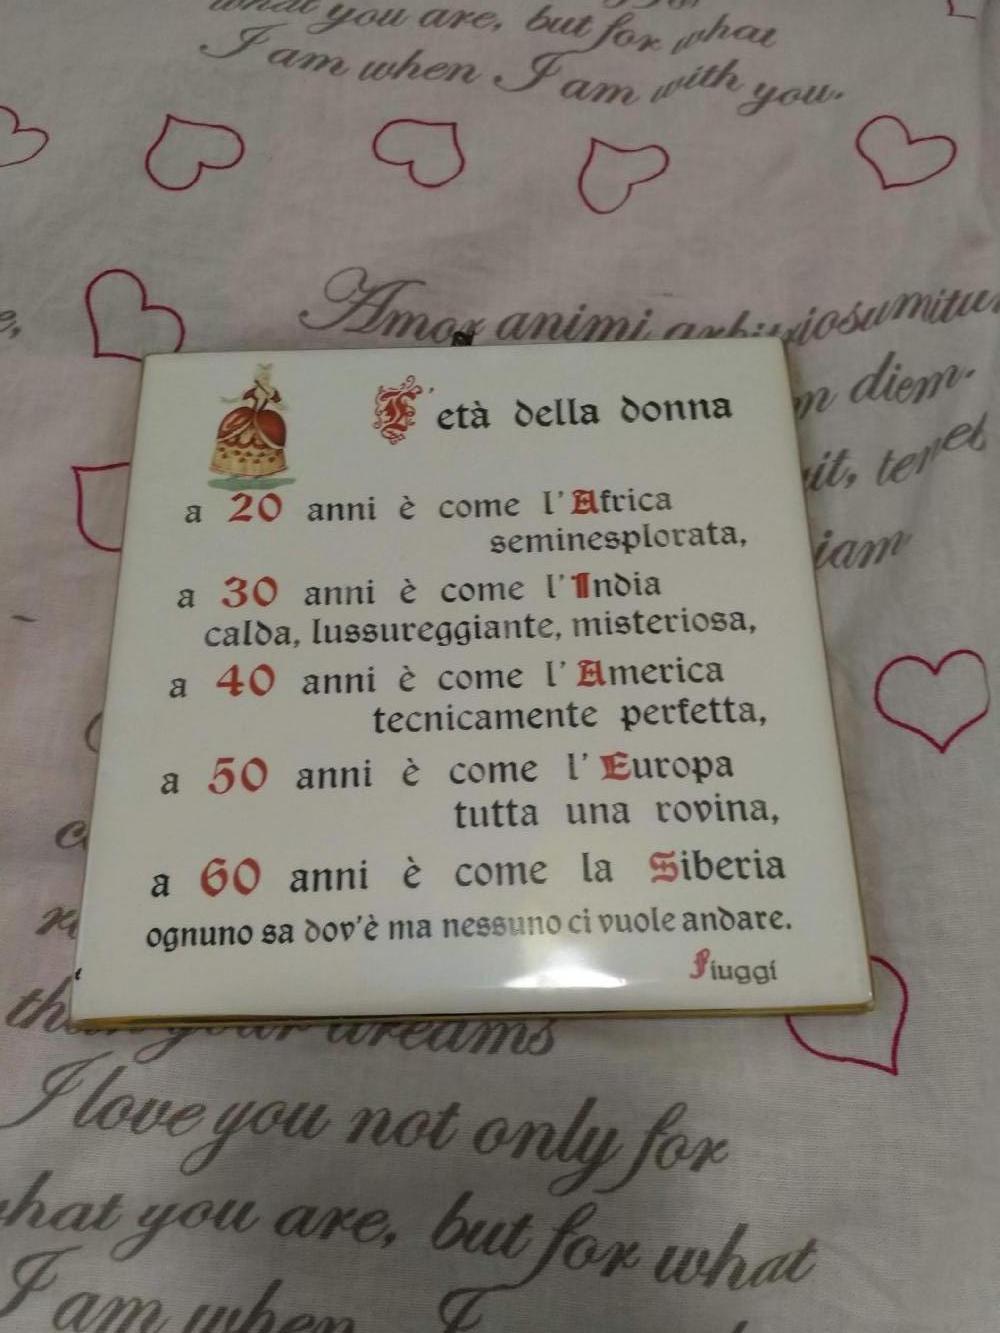 what you are, but for what
I am when I am with you.
Amor animi
diem.
L'età della donna
a 20 anni è come l'Africa
seminesplorata,
a 30 anni è come l'India
calda, lussureggiante, misteriosa,
a 40 anni è come l'America
tecnicamente perfetta,
a 50 anni è come l'Europa
tutta una rovina,
a 60 anni è come la Siberia
ognuno sa dov'è ma nessuno ci vuole andare.
Fiuggi
your dreams
I love you not only for
what you are, but for what
I am when I